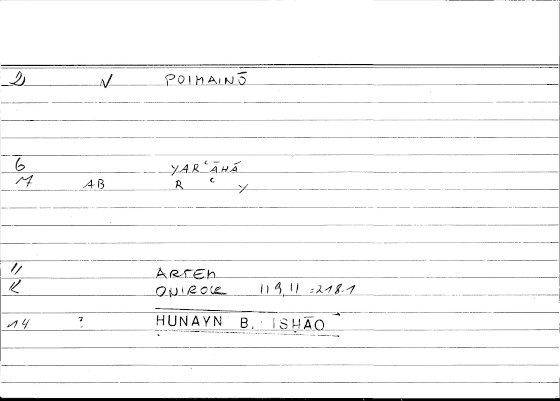 2 V POIMAINŌ
6 YARʿĀHĀ
7 AB R ʿ Y
11 ARTEM
12 ONIROCR 119,11 = 218.1
14 ? HUNAYN B. ISHĀQ